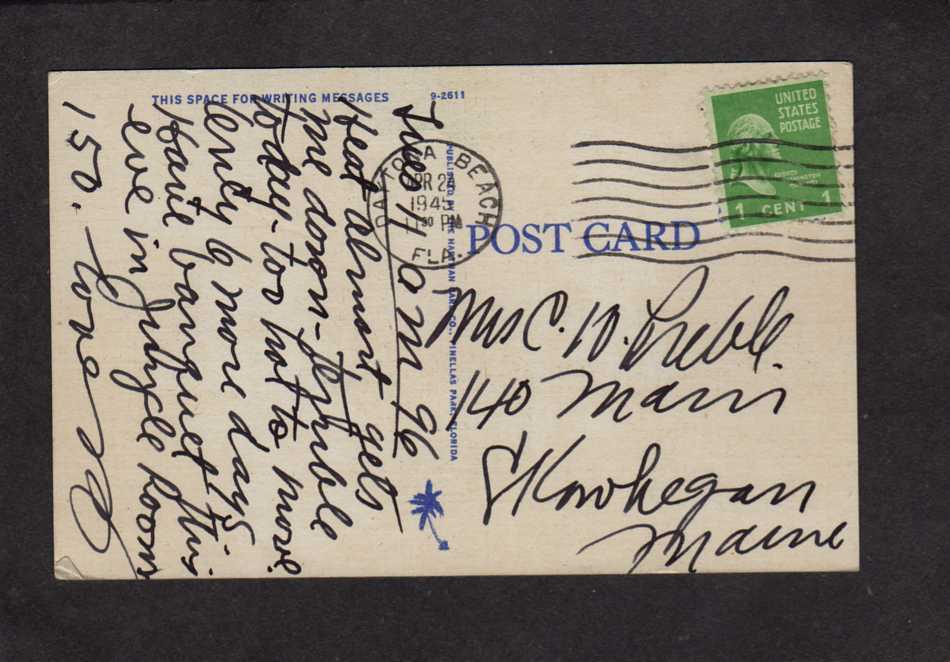 THIS SPACE FOR WRITING MESSAGES
9-2611
Tues 96
Heat almost gets
me down - terrible
today - too hot to move.
Only 6 more days.
Have banquet this
eve in Jungle Room
150. - Love
PUBLISHED BY THE HARTMAN CARD CO., PINELLAS PARK, FLORIDA
DAYTONA BEACH
APR 24
1945
11 30 PM
FLA.
UNITED
STATES
POSTAGE
GEORGE
WASHINGTON
1 CENT 1
POST CARD
Mrs C. W. Preble
140 Main
Skowhegan
Maine